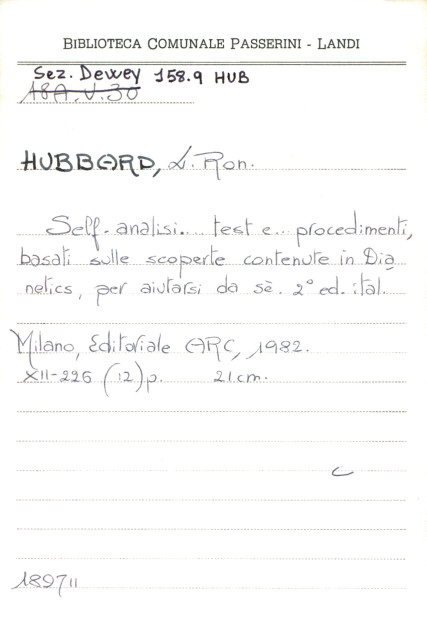 BIBLIOTECA COMUNALE PASSERINI - LANDI
Sez. Dewey 158.9 HUB
18A.V.30
HUBBARD, L. Ron.
Self-analisi... test e... procedimenti,
basati sulle scoperte contenute in Dia
netics, per aiutarsi da sè. 2° ed. ital.
Milano, Editoriale ARC, 1982.
XII-226 (12) p. 21 cm.
C
189711